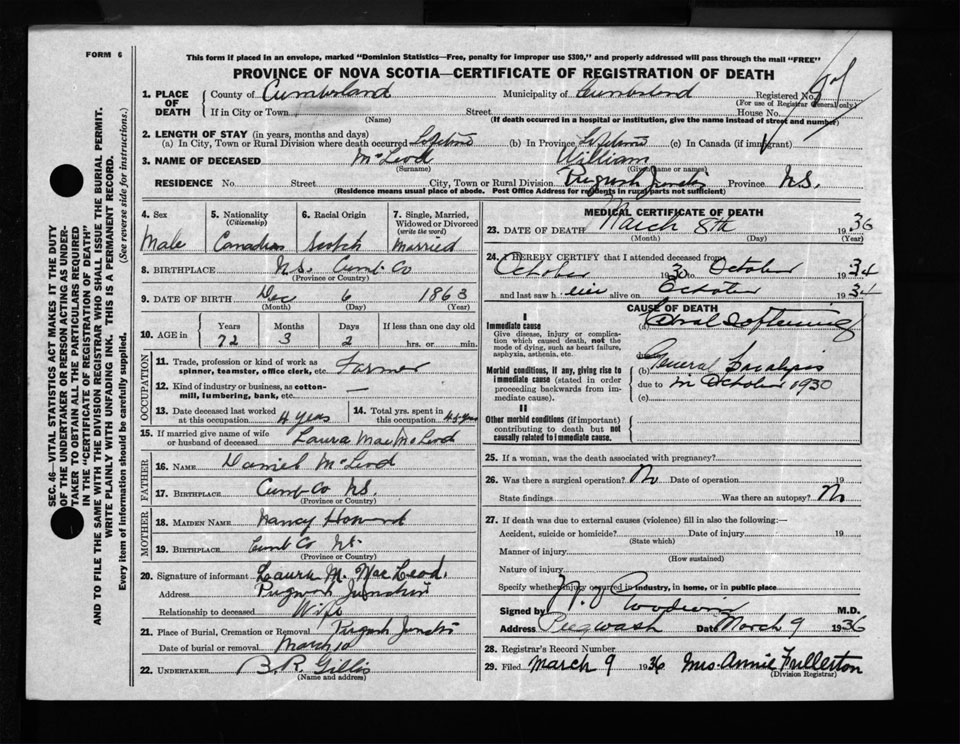 FORM 6
This form if placed in an envelope, marked "Dominion Statistics—Free, penalty for improper use $300," and properly addressed will pass through the mail "FREE"
PROVINCE OF NOVA SCOTIA—CERTIFICATE OF REGISTRATION OF DEATH
SEC. 46—VITAL STATISTICS ACT MAKES IT THE DUTY
OF THE UNDERTAKER OR PERSON ACTING AS UNDER-
TAKER TO OBTAIN ALL THE PARTICULARS REQUIRED
IN THE "CERTIFICATE OF REGISTRATION OF DEATH"
AND TO FILE THE SAME WITH THE DIVISION REGISTRAR WHO SHALL ISSUE THE BURIAL PERMIT.
WRITE PLAINLY WITH UNFADING INK. THIS IS A PERMANENT RECORD.
Every item of information should be carefully supplied. (See reverse side for instructions.)
1. PLACE OF DEATH County of Cumberland Municipality of Cumberland Registered No.
(For use of Registrar General only)
If in City or Town Street House No.
(Name) (If death occurred in a hospital or institution, give the name instead of street and number)
2. LENGTH OF STAY (in years, months and days)
(a) In City, Town or Rural Division where death occurred Lifetime (b) In Province Lifetime (c) In Canada (if immigrant)
3. NAME OF DECEASED McLeod William
(Surname) (Given name or names)
RESIDENCE No. Street City, Town or Rural Division Pugwash Junction Province N.S.
(Residence means usual place of abode. Post Office Address for residents in rural parts not sufficient)
4. Sex Male
5. Nationality (Citizenship) Canadian
6. Racial Origin Scotch
7. Single, Married, Widowed or Divorced (write the word) Married
8. BIRTHPLACE N.S. Cumb Co
(Province or Country)
9. DATE OF BIRTH Dec 6 1863
(Month) (Day) (Year)
10. AGE in Years 72 Months 3 Days 2 If less than one day old hrs. or min.
OCCUPATION
11. Trade, profession or kind of work as spinner, teamster, office clerk, etc. Farmer
12. Kind of industry or business, as cotton-mill, lumbering, bank, etc. —
13. Date deceased last worked at this occupation 4 years
14. Total yrs. spent in this occupation 45 years
15. If married give name of wife or husband of deceased Laura Mae McLeod
FATHER
16. NAME Daniel McLeod
17. BIRTHPLACE Cumb Co N.S.
(Province or Country)
MOTHER
18. MAIDEN NAME Nancy Howard
19. BIRTHPLACE Cumb Co N.S.
(Province or Country)
20. Signature of informant Laura M. MacLeod.
Address Pugwash Junction
Relationship to deceased Wife
21. Place of Burial, Cremation or Removal Pugwash Junction
Date of burial or removal March 10
22. UNDERTAKER B.R. Gillis
(Name and address)
MEDICAL CERTIFICATE OF DEATH
23. DATE OF DEATH March 8th 1936
(Month) (Day) (Year)
24. I HEREBY CERTIFY that I attended deceased from
October 1930 to October 1934
and last saw h alive on October 1934
CAUSE OF DEATH
I
Immediate cause
Give disease, injury or complication which caused death, not the mode of dying, such as heart failure, asphyxia, asthenia, etc.
(a) Softening
due to
Morbid conditions, if any, giving rise to immediate cause (stated in order proceeding backwards from immediate cause).
(b) General Paralysis
due to in October 1930
(c)
II
Other morbid conditions (if important) contributing to death but not causally related to immediate cause.
25. If a woman, was the death associated with pregnancy?
26. Was there a surgical operation? No Date of operation 19
State findings Was there an autopsy? No
27. If death was due to external causes (violence) fill in also the following:—
Accident, suicide or homicide? Date of injury 19
(State which)
Manner of injury
(How sustained)
Nature of injury
Specify whether injury occurred in industry, in home, or in public place
Signed by M.D.
Address Pugwash Date March 9 1936
28. Registrar's Record Number
29. Filed March 9 1936 Mrs. Annie Fullerton
(Division Registrar)